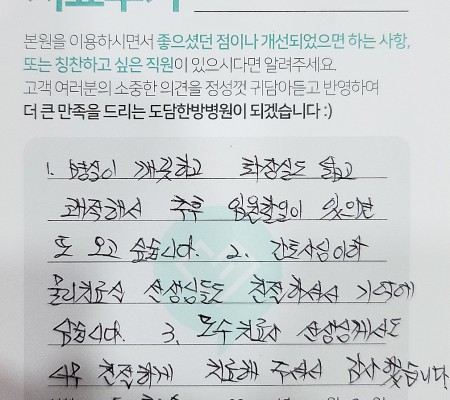 본원을 이용하시면서 좋으셨던 점이나 개선되었으면 하는 사항,
또는 칭찬하고 싶은 직원이 있으시다면 알려주세요.
고객 여러분의 소중한 의견을 정성껏 귀담아듣고 반영하여
더 큰 만족을 드리는 도담한방병원이 되겠습니다 :)
1. 병실이 깨끗하고 화장실도 넓고
쾌적해서 추후 입원할일이 있으면
또 오고 싶습니다. 2. 간호사님이랑
물리치료실 선생님들도 친절하셔서 기억에
남습니다. 3. 도수치료사 선생님께서도
너무 친절하게 치료해 주셔서 감사했습니다